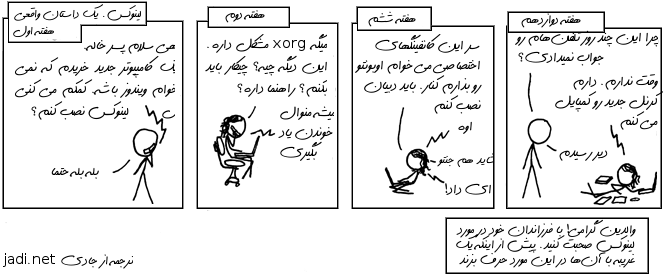 لینوکس. یک داستان واقعی
هفته اول
هی سلام پسر خاله.
یک کامپیوتر جدید خریدم که نمی
خوام ویندوز باشه. کمکم می کنی
لینوکس نصب کنم؟
بله بله حتما
هفته دوم
میگه xorg مشکل داره.
این دیگه چیه؟ چیکار باید
بکنم؟ راهنما داره؟
میشه منوال
خوندن یاد
بگیری
هفته ششم
سر این کانفیگهای
اختصاصی می خوام اوبونتو
رو بذارم کنار. باید دبیان
نصب کنم
اوه
شاید هم جنتو
ای داد!
هفته دوازدهم
چرا این چند روز تلفن هام رو
جواب نمیدادی؟
وقت ندارم. دارم
کرنل جدید رو کمپایل
می کنم
دیر رسیدم
والدین گرامی! با فرزاندان خود در مورد
لینوکس صحبت کنید. پیش از اینکه یک
غریبه با آن‌ها در این مورد حرف بزند
ترجمه از جادی jadi.net